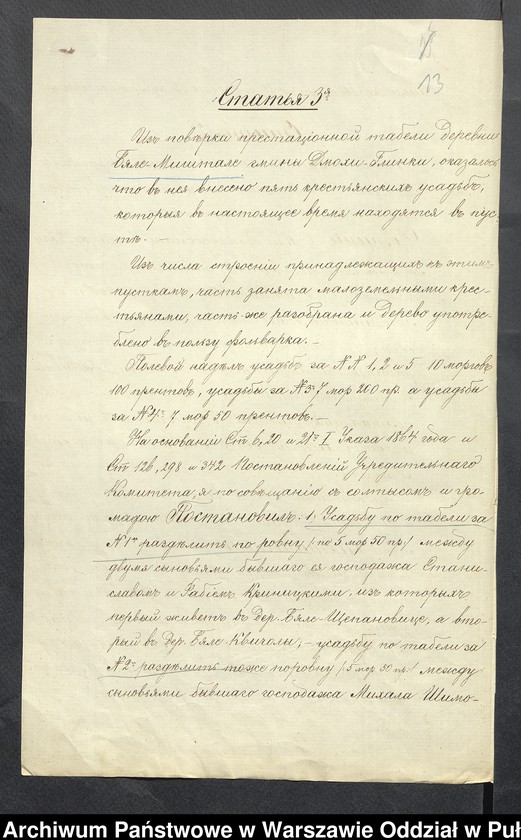 13
Статья 3я
Изъ поверки престаціонной табели Деревни
Бяле-Мишталe гмины Дмохи-Глинки, оказалось
что въ нея внесено пять крестьянскихъ усадьбъ,
которыя въ настоящее время находятся въ пус-
тѣ. —
Изъ числа строеній принадлежащихъ къ этимъ
пусткамъ, часть занята малоземельными крес-
тьянами, часть же разобрана и дерево употре-
блено въ пользу фольварка. —
Полевой надѣлъ усадьбъ за NN 1, 2 и 5 10 морговъ
100 прентовъ, усадьбы за N 3мъ 7 мор 200 пр. а усадьбы
за N 4мъ 7 мор 50 прентовъ. —
На основаніи Ст 6, 20 и 21й I Указа 1864 года и
Ст 126, 298 и 342 Постановленій Учредительнаго
Комитета, я по совѣщанію съ солтысомъ и гро-
мадою Постановилъ: 1. Усадьбу по табели за
N 1мъ раздѣлить по ровну /по 5 мор 50 пр./ между
двумя сыновьями бывшаго ея господажа Стани-
славомъ и Криницкими, изъ которыхъ
первый живетъ въ дер. Бяле-Щепановице, а вто-
рый въ дер. Бяле Квачолы, — усадьбу по табели за
N 2мъ раздѣлить тоже поровну /5 мор 50 пр/ между
сыновьями бывшаго господажа Михала Шимо-
Archiwum Państwowe w Warszawie Oddział w Puł